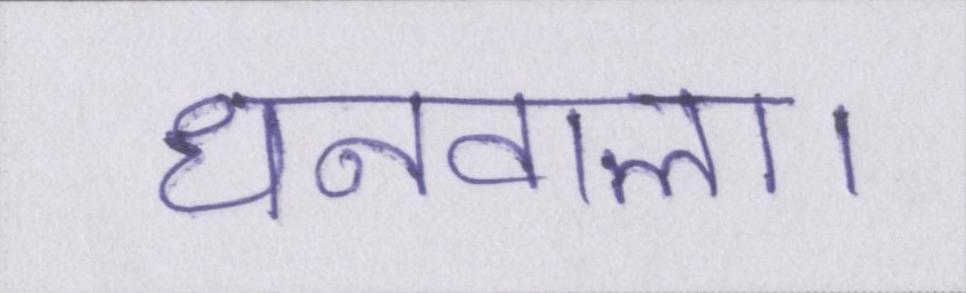 धनवाला।